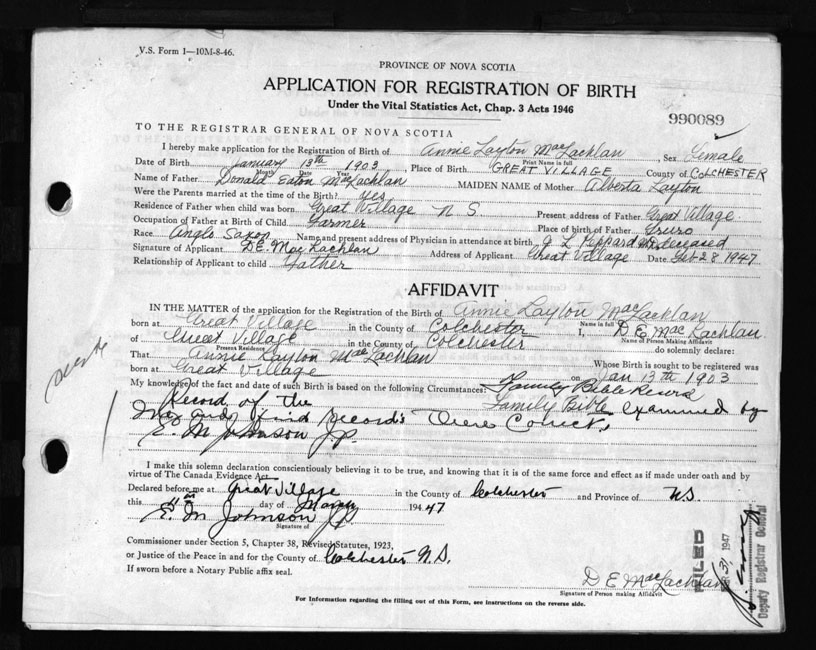 V.S. Form 1—10M-8-46.
PROVINCE OF NOVA SCOTIA
APPLICATION FOR REGISTRATION OF BIRTH
Under the Vital Statistics Act, Chap. 3 Acts 1946
990089
TO THE REGISTRAR GENERAL OF NOVA SCOTIA
I hereby make application for the Registration of Birth of Annie Layton MacLachlan Sex Female
Print Name in full
Date of Birth January 13th 1903 Place of Birth GREAT VILLAGE County of COLCHESTER
Month Date Year
Name of Father Donald Eaton MacLachlan MAIDEN NAME of Mother Alberta Layton
Were the Parents married at the time of the birth? yes
Residence of Father when child was born Great Village N S. Present address of Father Great Village
Occupation of Father at Birth of Child Farmer Place of birth of Father Truro
Race Anglo Saxon Name and present address of Physician in attendance at birth J L Peppard MD deceased
Signature of Applicant D.E. MacLachlan Address of Applicant Great Village Date Feb 28 1947
Relationship of Applicant to child Father
AFFIDAVIT
IN THE MATTER of the application for the Registration of the Birth of Annie Layton MacLachlan
Name in full
born at Great Village in the County of Colchester I, D E MacLachlan
Name of Person Making Affidavit
of Great Village in the County of Colchester do solemnly declare:
Present Residence
That Annie Layton MacLachlan Whose Birth is sought to be registered was
born at Great Village on Jan 13th 1903
My knowledge of the fact and date of such Birth is based on the following Circumstances: Family Bible Record
Record of the Family Bible examined by
Me and find Records Were Correct,
E. M Johnson J.P.
I make this solemn declaration conscientiously believing it to be true, and knowing that it is of the same force and effect as if made under oath and by
virtue of The Canada Evidence Act.
Declared before me at Great Village in the County of Colchester and Province of N.S.
this 11 day of March 194 47
E. M Johnson J.P.
Signature of
Commissioner under Section 5, Chapter 38, Revised Statutes, 1923,
or Justice of the Peace in and for the County of Colchester N.S.
If sworn before a Notary Public affix seal.
D E MacLachlan
Signature of Person making Affidavit
For Information regarding the filling out of this Form, see instructions on the reverse side.
FILED
31, 1947
Deputy Registrar General